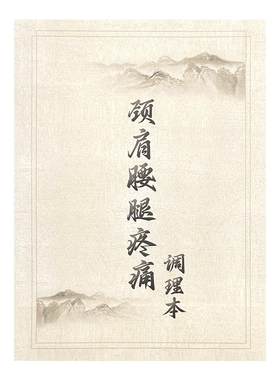 颈肩腰腿疼痛
调理本